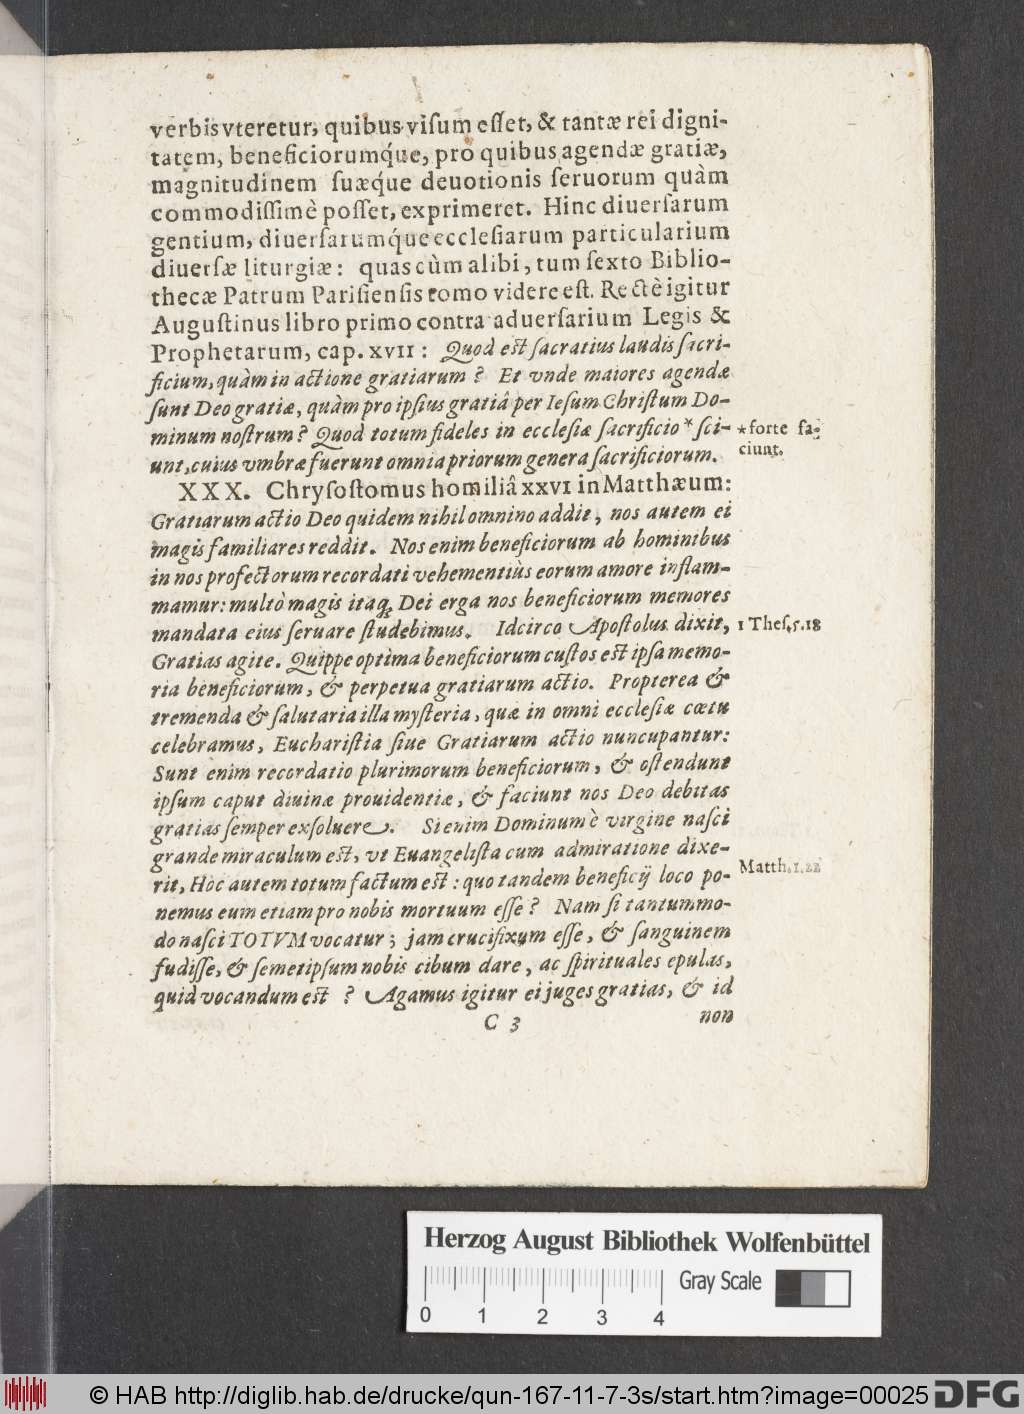 verbis vteretur, quibus visum eſſet, & tantæ rei digni-
tatem, beneficiorumq́ue, pro quibus agendæ gratiæ,
magnitudinem ſuæq́ue deuotionis ſeruorum quàm
commodiſſimè poſſet, exprimeret. Hinc diuerſarum
gentium, diuerſarumq́ue eccleſiarum particularium
diuerſæ liturgiæ: quas cùm alibi, tum ſexto Biblio-
thecæ Patrum Pariſienſis tomo videre eſt. Rectè igitur
Auguſtinus libro primo contra aduerſarium Legis &
Prophetarum, cap. xvii: Quod eſt ſacratius laudis ſacri-
ficium, quàm in actione gratiarum? Et vnde maiores agendæ
ſunt Deo gratiæ, quàm pro ipſius gratiâ per Ieſum Chriſtum Do-
minum noſtrum? Quod totum fideles in eccleſiæ ſacrificio * ſci- * forte fa-
unt, cuius vmbræ fuerunt omnia priorum genera ſacrificiorum. ciunt.
XXX. Chryſoſtomus homiliâ xxvi in Matthæum:
Gratiarum actio Deo quidem nihil omnino addit, nos autem ei
magis familiares reddit. Nos enim beneficiorum ab hominibus
in nos profectorum recordati vehementiùs eorum amore inflam-
mamur: multò magis itaq; Dei erga nos beneficiorum memores
mandata eius ſeruare ſtudebimus. Idcirco Apoſtolus dixit, 1 Theſ. 5. 18
Gratias agite. Quippe optima beneficiorum cuſtos eſt ipſa memo-
ria beneficiorum, & perpetua gratiarum actio. Propterea &
tremenda & ſalutaria illa myſteria, quæ in omni eccleſiæ cœtu
celebramus, Euchariſtia ſiue Gratiarum actio nuncupantur:
Sunt enim recordatio plurimorum beneficiorum, & oſtendunt
ipſum caput diuinæ prouidentiæ, & faciunt nos Deo debitas
gratias ſemper exſoluere. Si enim Dominum è virgine naſci
grande miraculum eſt, vt Euangeliſta cum admiratione dixe-
rit, Hoc autem totum factum eſt: quo tandem beneficij loco po- Matth. 1. 22
nemus eum etiam pro nobis mortuum eſſe? Nam ſi tantummo-
do naſci TOTVM vocatur; jam crucifixum eſſe, & ſanguinem
fudiſſe, & ſemetipſum nobis cibum dare, ac ſpirituales epulas,
quid vocandum eſt? Agamus igitur ei juges gratias, & id
C 3 non
Herzog August Bibliothek Wolfenbüttel
Gray Scale
0 1 2 3 4
© HAB http://diglib.hab.de/drucke/qun-167-11-7-3s/start.htm?image=00025 DFG